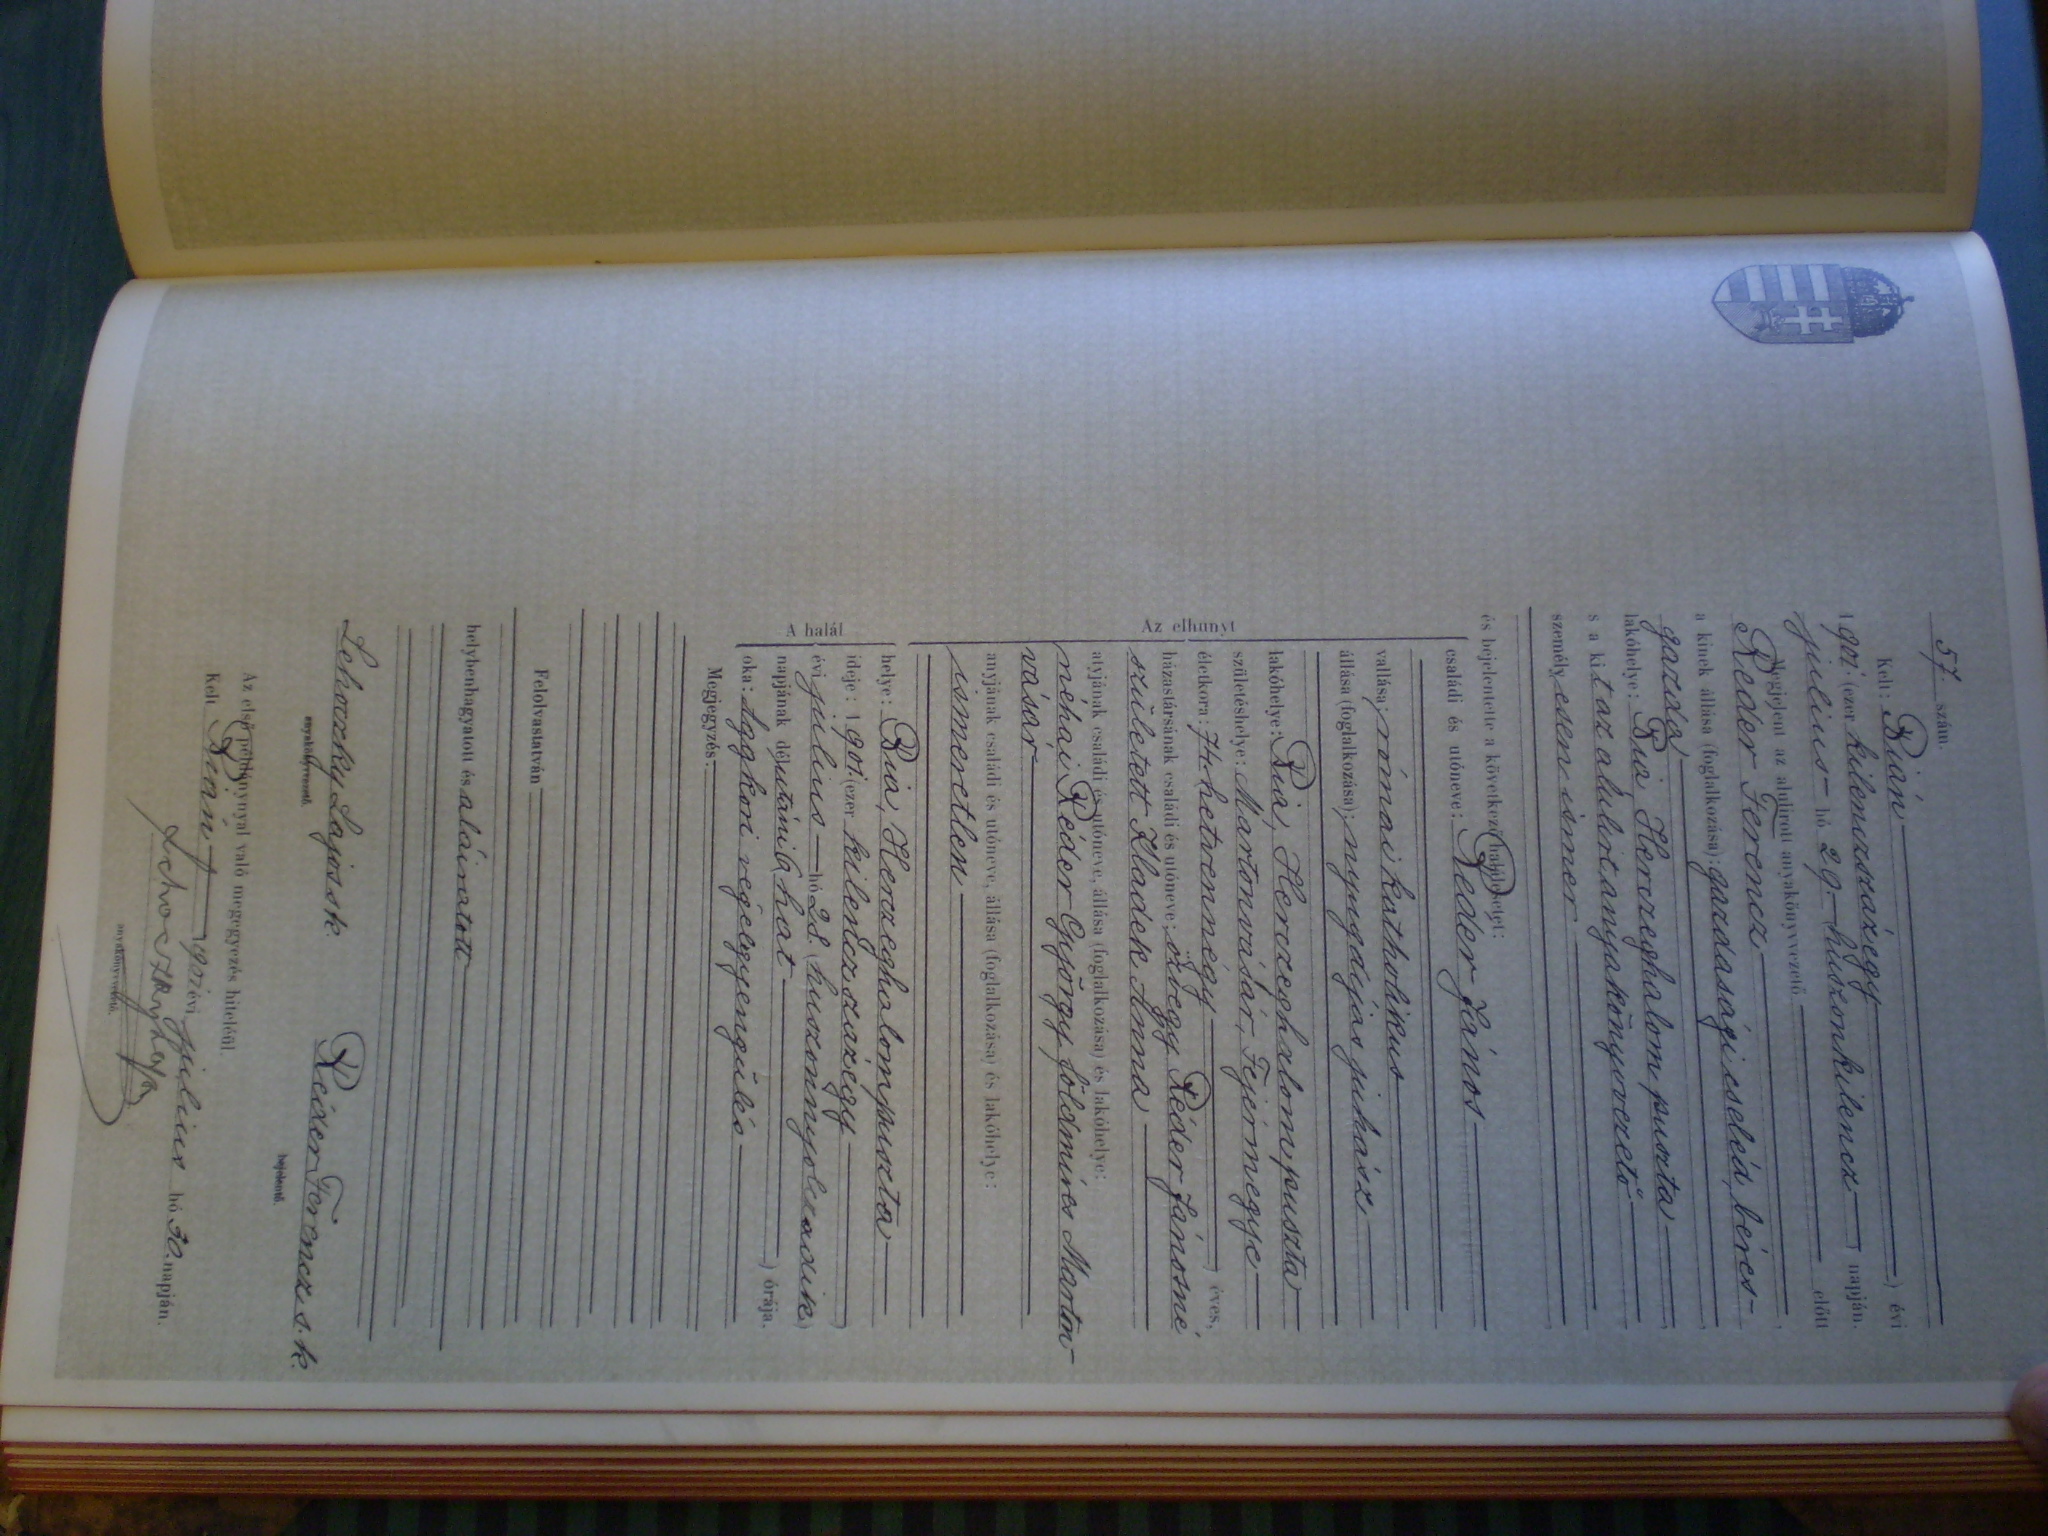 57 szám.
Kelt: Bián
1901. (ezer kilenczszázegy) évi
julius hó 29. huszonkilencz napján.
Megjelent az alulirott anyakönyvvezető előtt
Réder Ferencz
a kinek állása (foglalkozása): gazdasági cseléd, béres-
gazda,
lakóhelye: Bia, Herczeghalom puszta
s a kit az alulirt anyakönyvvezető
személyesen ismer
és bejelentette a következő halálesetet:
Az elhunyt
családi és utóneve: Réder János
vallása: római katholikus
állása (foglalkozása): nyugdíjas juhász
lakóhelye: Bia, Herczeghalom puszta
születéshelye: Martonvásár, Fejérmegye
életkora: 74. hetvennégy éves,
házastársának családi és utóneve: özvegy Réder Jánosné
született Hladek Anna
atyjának családi és utóneve, állása (foglalkozása) és lakóhelye:
néhai Réder György, földmíves Marton-
vásár
anyjának családi és utóneve, állása (foglalkozása) és lakóhelye:
ismeretlen
A halál
helye: Bia, Herczeghalompuszta
ideje: 1901. (ezer kilenczszázegy)
évi julius hó 28. (huszonnyolczadik)
napjának délutáni 6 (hat) órája.
oka: aggkori végelgyengülés
Megjegyzés:
Felolvastatván
helybenhagyatott és aláiratott
Lehoczky Lajos sk. Réder Ferencz s. k.
anyakönyvvezető. bejelentő.
Az első példánynyal való megegyezés hiteléül.
Kelt Bián, 1901 évi julius hó 30. napján.
Lehoczky Lajos
anyakönyvvezető.